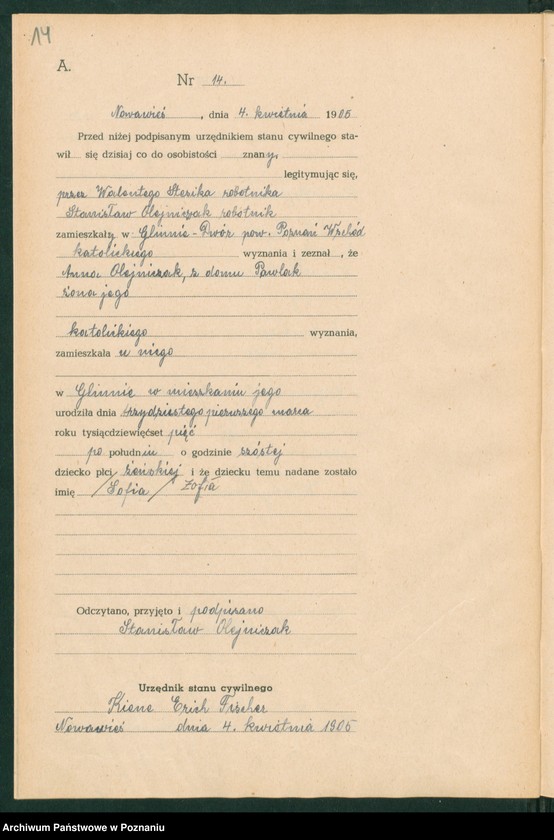 14
A.
Nr 14.
Nowawieś, dnia 4. kwietnia 1905
Przed niżej podpisanym urzędnikiem stanu cywilnego sta-
wił się dzisiaj co do osobistości znany,
legitymując się,
przez Walentego robotnika
Stanisław Olejniczak robotnik
zamieszkały w Glinnie-Dwór pow. Poznań Wschód
katolickiego wyznania i zeznał, że
Anna Olejniczak, z domu Pawlak
żona jego
katolickiego wyznania,
zamieszkała u niego
w Glinnie w mieszkaniu jego
urodziła dnia trzydziestego pierwszego marca
roku tysiącdziewięćset pięć
po południu o godzinie szóstej
dziecko płci żeńskiej i że dziecku temu nadane zostało
imię / Sofia / Zofia
Odczytano, przyjęto i podpisano
Stanisław Olejniczak
Urzędnik stanu cywilnego
Erich Fischer
Nowawieś dnia 4. kwietnia 1905
Archiwum Państwowe w Poznaniu